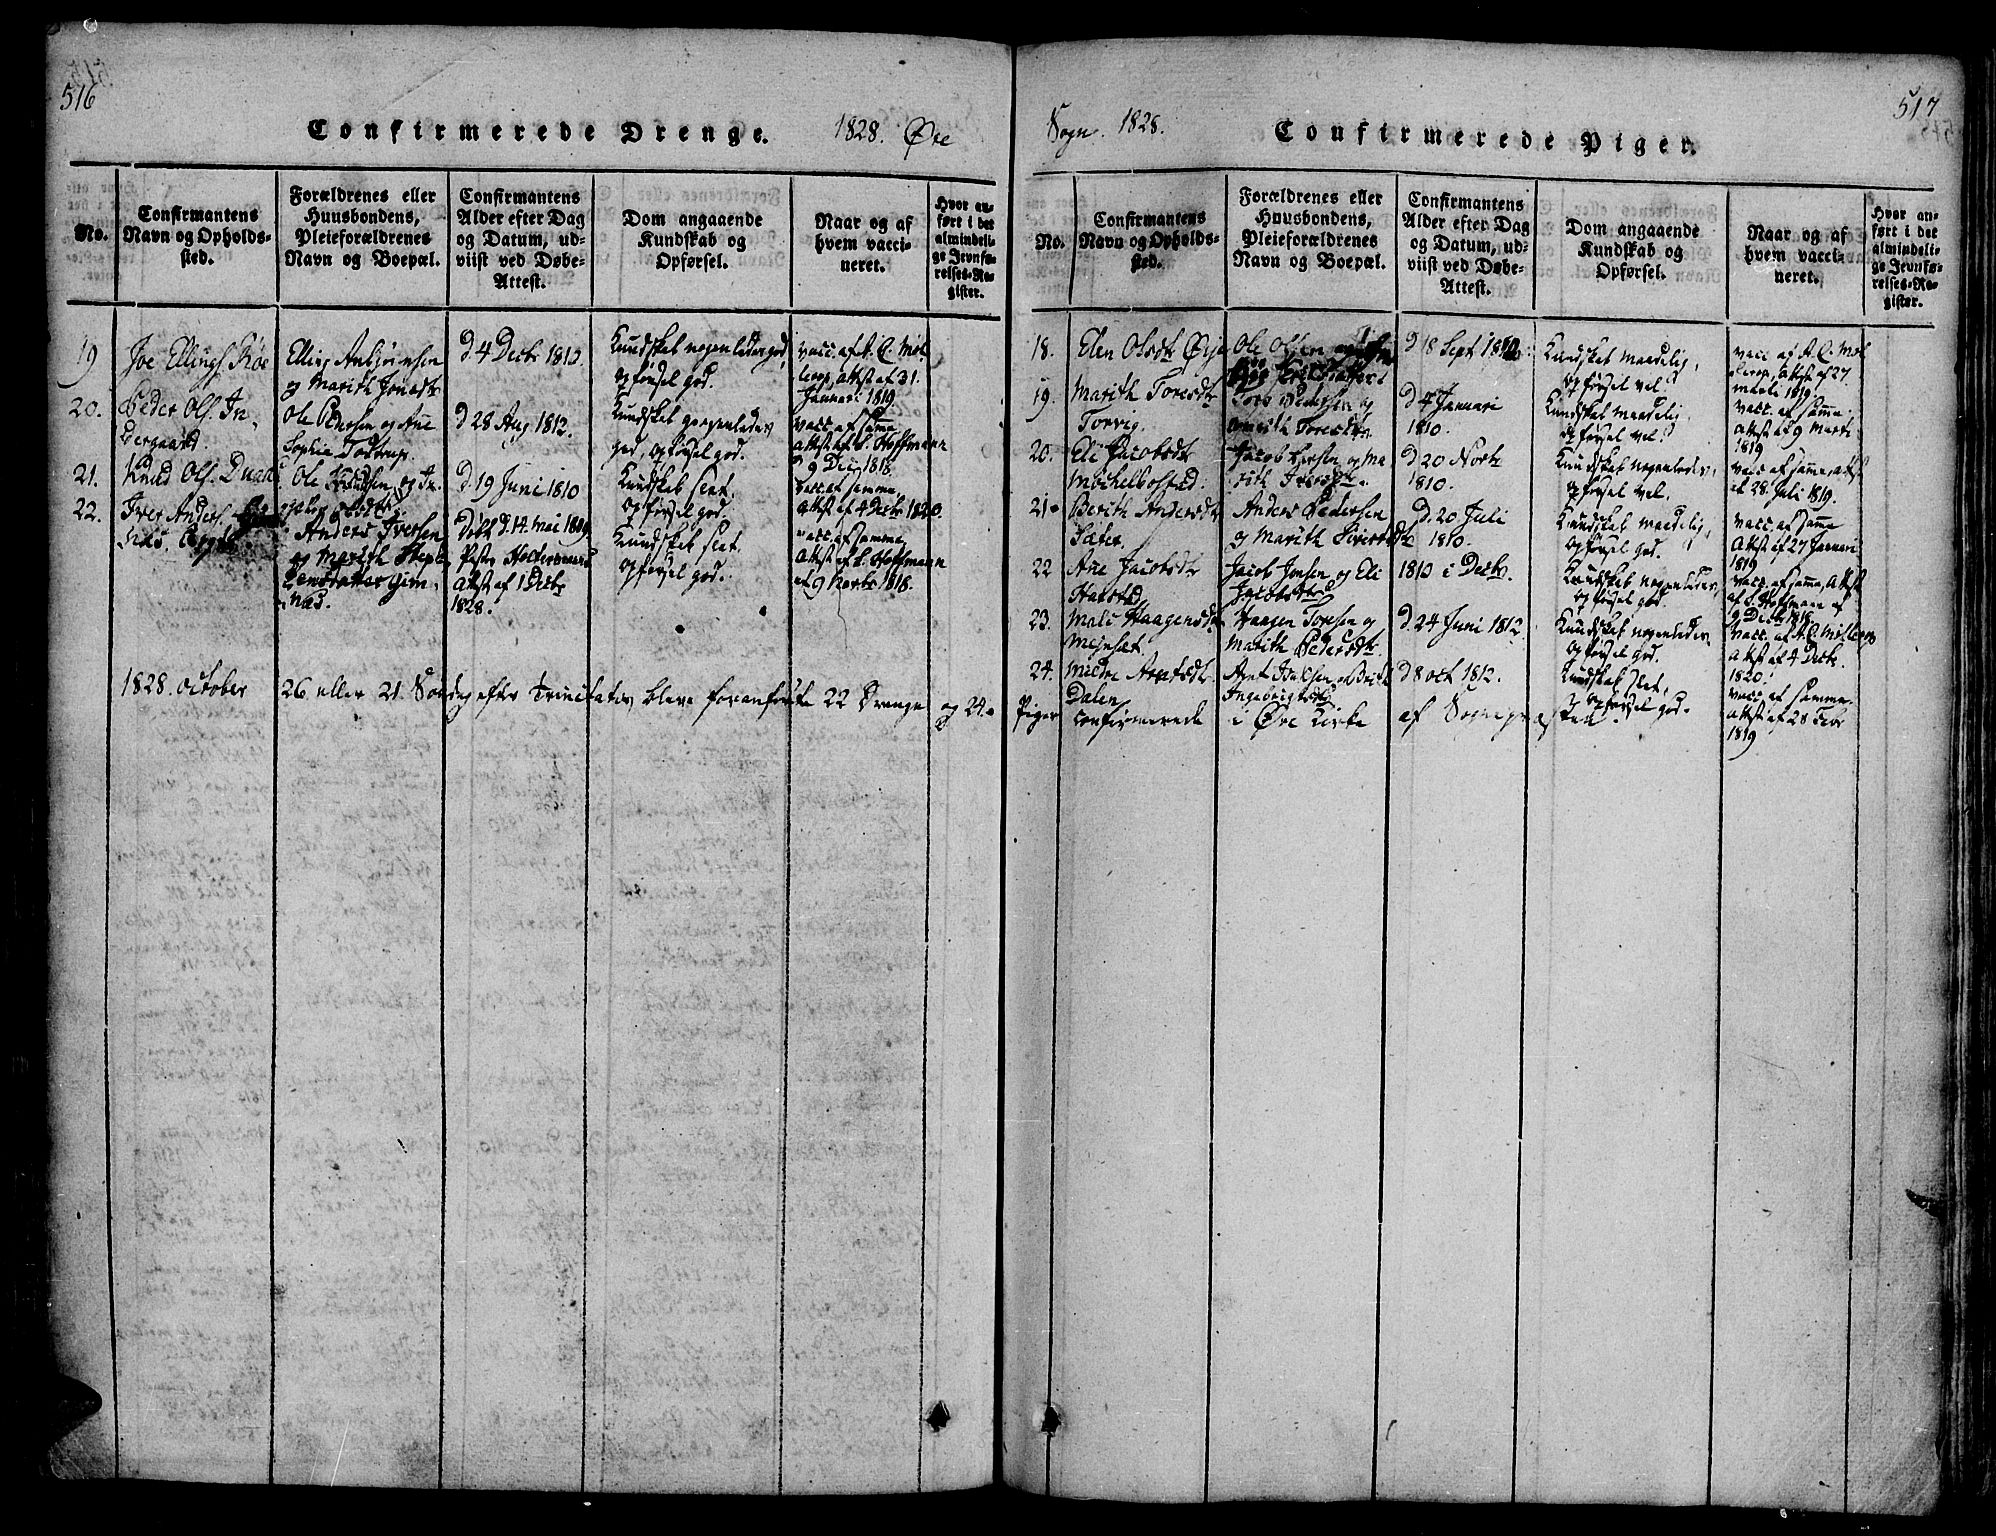 516
Confirmerede Drenge. 1828. Øre
No.
Confirmantens
Navn og Opholds-
sted.
Forældrenes eller
Huusbondens,
Pleieforældrenes
Navn og Boepæl.
Confirmantens
Alder efter Dag
og Datum, ud-
viist ved Døbe-
Attest.
Dom angaaende
Kundskab og
Opførsel.
Naar og af
hvem vacci-
neret.
Hvor an-
ført i det
almindeli-
ge Jevnfø-
relses-Re-
gister.
19
Joe Ellings. Röe
Elling Anbjörnsen
og Marith Jonsdtr
d 4 Decbr 1813.
Kundskab nogenledes god,
opførsel god.
vacc. af A. C. Möl
lerop, attest af 31.
Januari 1819
20.
Peder Ols. In-
dergaard
Ole Pedersen og Ane
Sophie Tostrup.
d 28 Aug 1812.
Kundskab nogenledes
god, opførsel god.
vacc af samme
attest af L. Hoffmann
d 9 Dec 1818.
21.
Knud Ols.
Ole Knudsen og In-
d 19 Juni 1810
Kundskab slet.
opførsel god.
vacc af samme,
attest af 4 Decbr 1820.
22.
Iver Anders.
Anders Iversen
og Marith Steph
ensdatter Gim-
næs.
Döbt d. 14. Mai 1809
Attest af 1 Decbr
1828.
Kundskab slet.
opførsel god.
vacc af samme.
Attest af L. Hoffmann
af 9 Novbr 1818.
1828. October 26 eller 21. Söndag efter Trinitatis bleve foranførte 22 Drenge og 24.
517
Sogn. 1828. Confirmerede Piger.
No.
Confirmantens
Navn og Opholds-
sted.
Forældrenes eller
Huusbondens,
Pleieforældrenes
Navn og Boepæl.
Confirmantens
Alder efter Dag
og Datum, ud-
viist ved Døbe-
Attest.
Dom angaaende
Kundskab og
Opførsel.
Naar og af
hvem vacci-
neret.
Hvor an-
ført i det
almindeli-
ge Jevnfø-
relses-Re-
gister.
18.
Elen Olsdtr Øye
Ole Olsen
d 18 Sept
Kundskab maadelig,
opførsel vel.
vacc af A. C. Möl
lerop, attest af 27
1819.
19.
Marith Toresdtr
Torvig.
Tore Pedersen og
Marith Toresdtr.
d 4 Januari
1810.
Kundskab maadelig
opførsel vel.
vacc. af samme
Attest af 9 Marti
1819
20.
Eli Jacobsdtr
Möchelbostad.
Jacob Larsen og Ma
rith Iversdtr.
d 20 Novbr
1810.
Kundskab nogenledes,
opførsel vel.
vacc af samme, attest
af 28 Juli 1819.
21.
Berith Andersdtr
Sæter
Anders Pedersen
og Marith Siversdtr
d. 20 Juli
1810.
Kundskab maadelig,
opførsel god.
vacc af samme
Attest af 27 Januari
1819
22
Ane Jacobsdtr
Harstad
Jacob Jonsen og Eli
Jacobsdtr
1813 i Decbr.
Kundskab nogenledes,
opførsel god.
vacc. af samme, Attest
af L. Hoffmann af
9 Decbr 1818
23.
Mali Haagensdtr
Meisæt.
Haagen Torsen og
Marith Pedersdtr
d. 24 Juni 1812
Kundskab nogenledes
opførsel god.
vacc. af A. C. Möllerop
attest af 4 Decbr
1820.
24.
Mildri Arntsdtr
Dalen
Arnt Isaksen og Brith
Ingebrigtsdtr
d 8 oct 1812.
Kundskab slet,
opførsel god.
vacc af samme.
attest af 28 Febr
1819
Piger confirmerede i Øre Kirke af Sognepræsten.